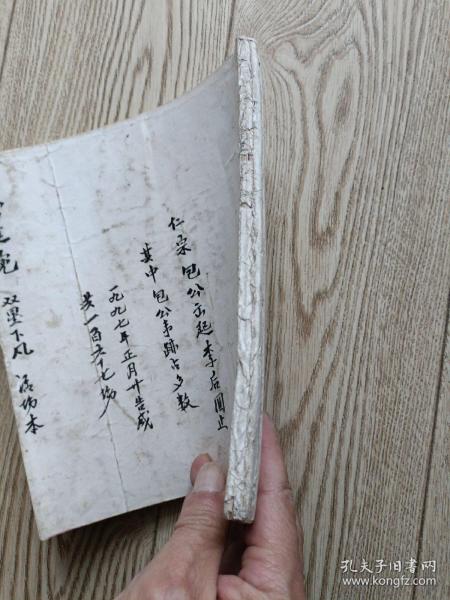 仁宗包公出起李后圆止
其中包公事跡占多数
一九九七年正月廿告成
共一百六十七场
双里下凡 活场本
孔夫子旧书网
www.kongfz.com